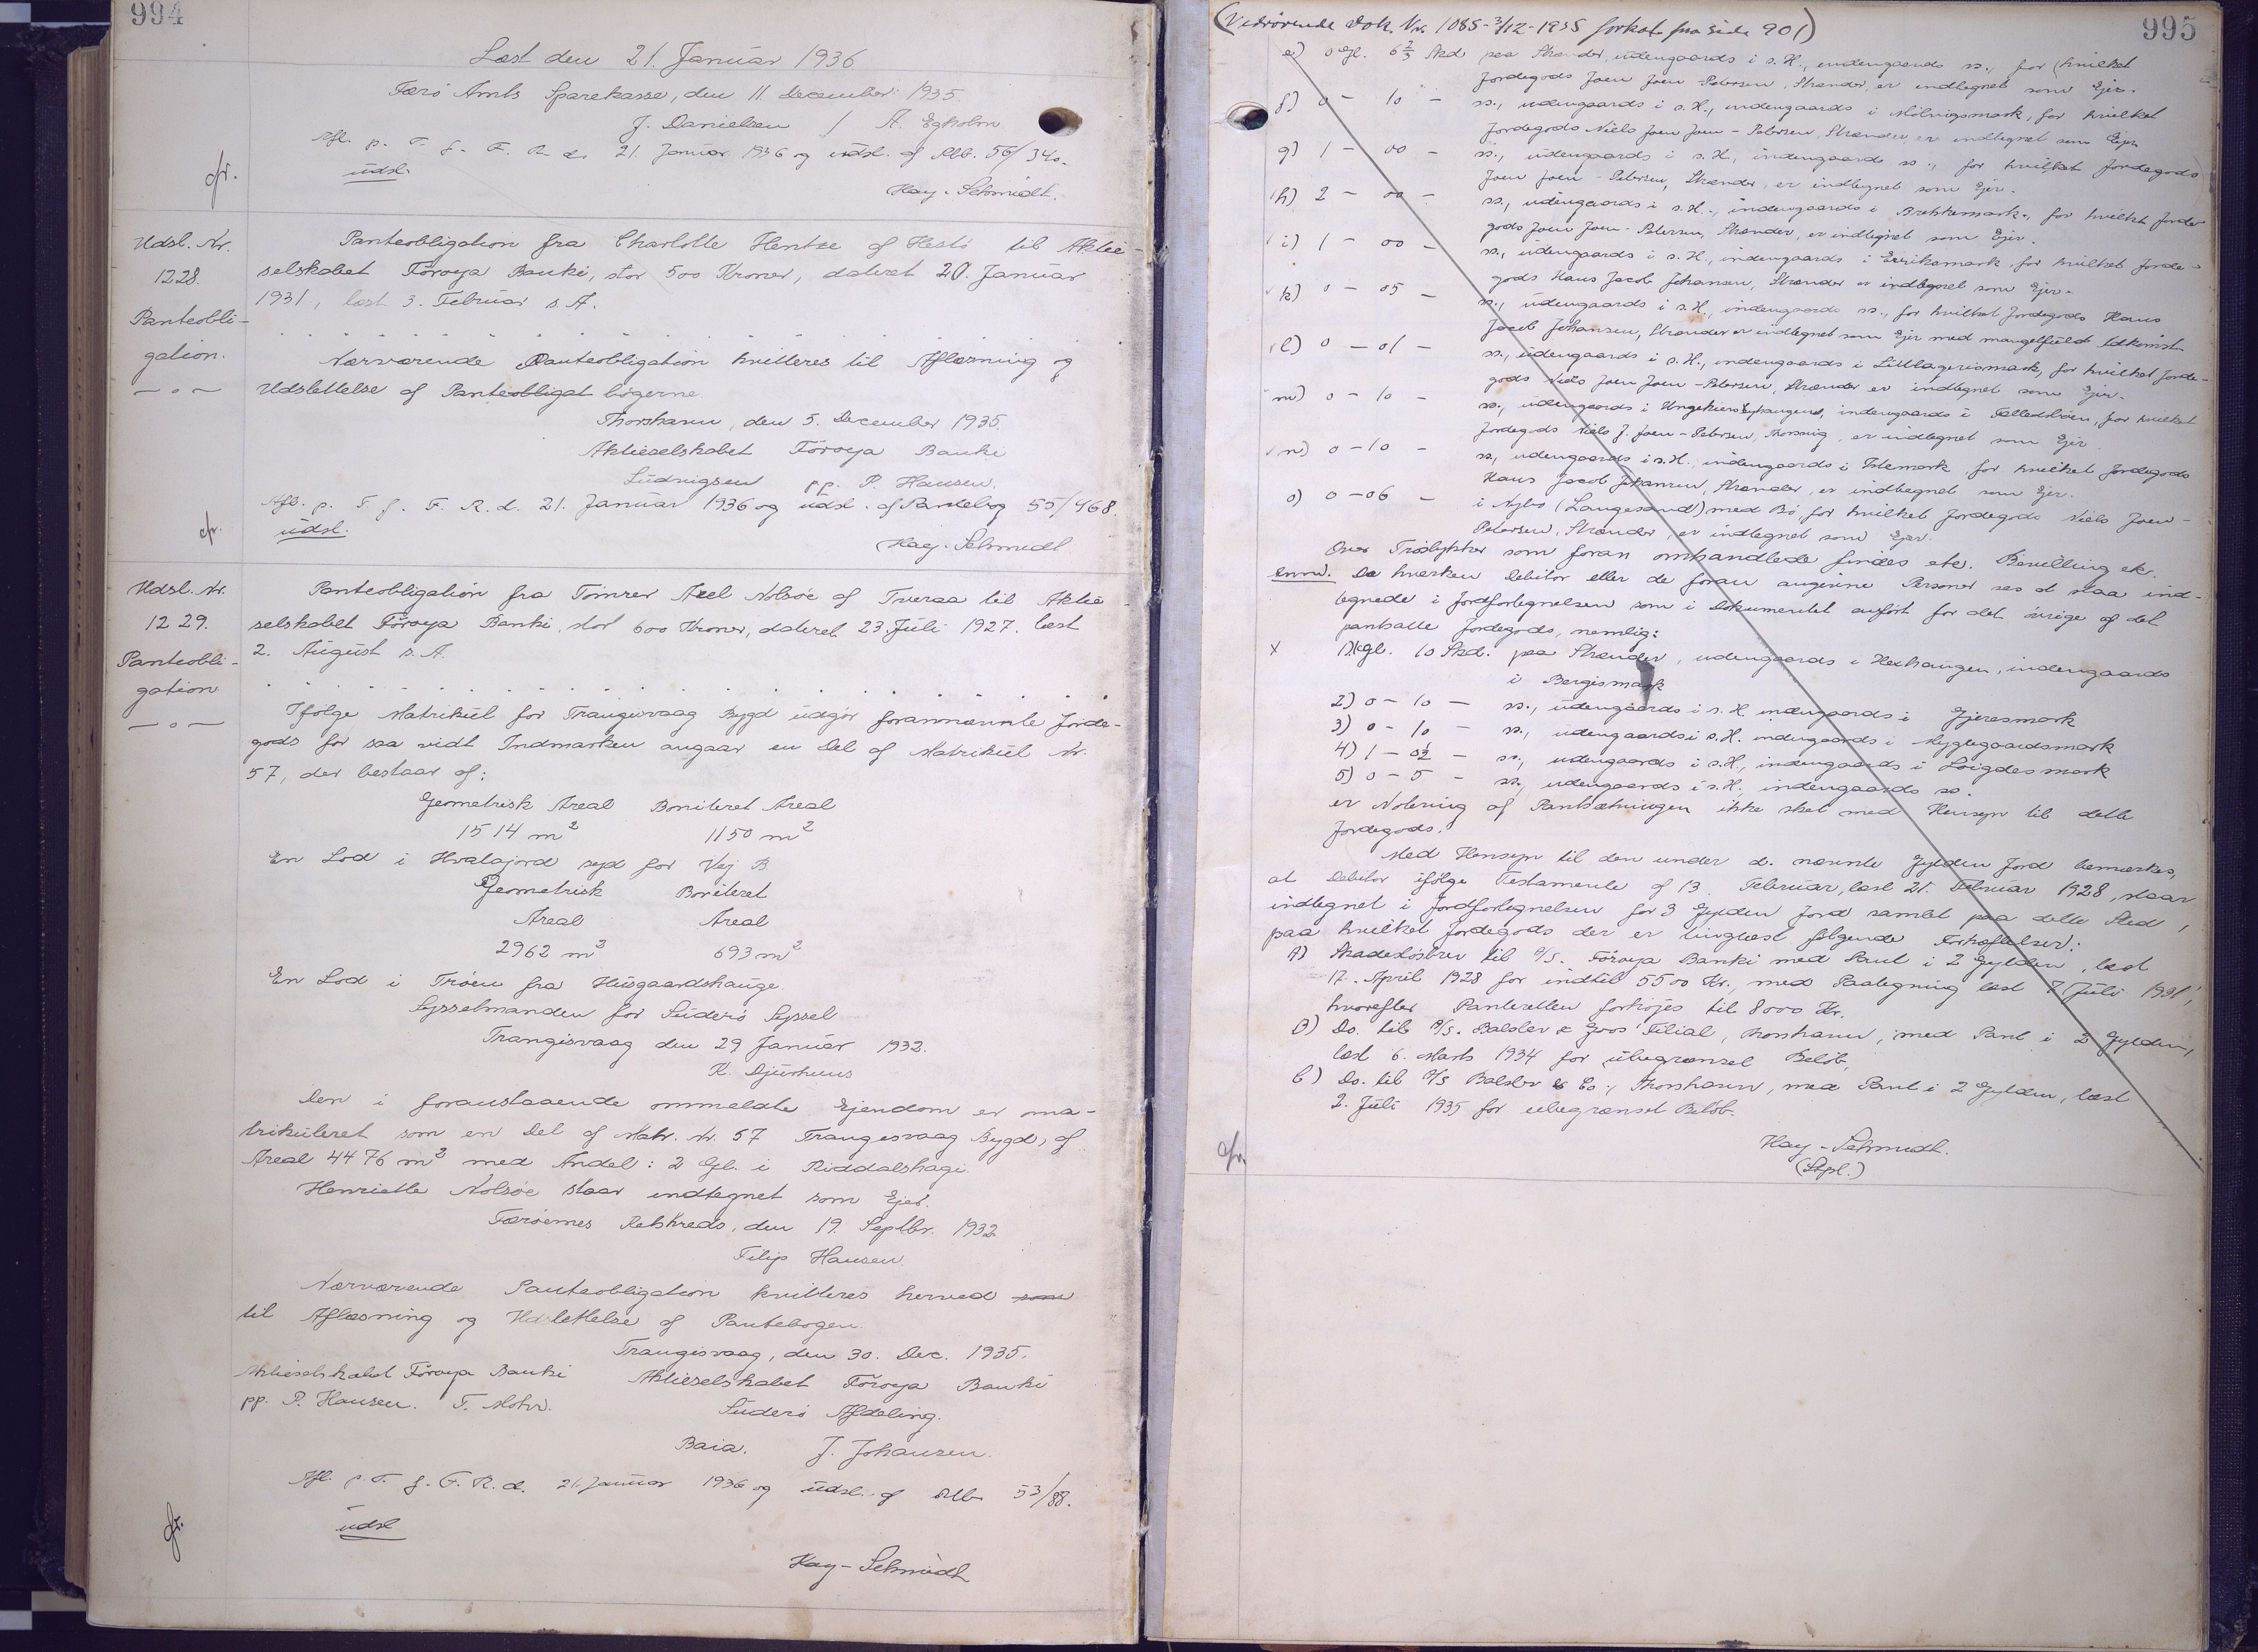 994
Læst den 21. Januar 1936
Færø Amts Sparekasse, den 11. December 1935.
J. Danielsen / A. Egholm
Afl. p. T. f. F. R. d. 21. Januar 1936 og udsl. af Alb. 56/340.
udsl.
Hay-Schmidt.
cfr.
Udsl. Nr.
1228.
Panteobli-
gation.
— o —
Panteobligation fra Charlotte Hentze af Hestö til Aktie-
selskabet Föroya Banki, stor 500 Kroner, dateret 20. Januar
1931, læst 3. Februar s. A.
Nærværende Panteobligation kvitteres til Aflæsning og
Udslettelse af Panteobligat bögerne.
Thorshavn, den 5. December 1935.
Aktieselskabet Föroya Banki
Ludvigsen pp. P. Hansen.
Afl. p. T. f. F. R. d. 21. Januar 1936 og udsl. af Pantebog 55/468.
udsl.
Hay-Schmidt
cfr.
Udsl. Nr.
1229.
Panteobli-
gation
— o —
Panteobligation fra Tömrer Axel Nolsöe af Tveraa til Aktie-
selskabet Föroya Banki, stor 600 Kroner, dateret 23. Juli 1927, læst
2. August s. A.
Ifölge Matrikul for Trangisvaag Bygd udgör forannævnte Jorde-
gods for saa vidt Indmarken angaar en Del af Matrikul Nr.
57, der bestaar af:
Geometrisk Areal Boniteret Areal
1514 m² 1150 m²
En Lod i Hvalajord syd for Vej B.
Geometrisk Boniteret
Areal Areal
2962 m² 693 m²
En Lod i Tröen fra Husgaardshauge.
Sysselmanden for Suderö Syssel
Trangisvaag den 29 Januar 1932.
R. Djurhuus
Den i foranstaaende ommeldte Ejendom er ma-
trikuleret som en Del af Matr. Nr. 57 Trangesvaag Bygd, af
Areal 4476 m² med Andel: 2 Gl. i Riddalshagi.
Henriette Nolsöe staar indtegnet som Ejer.
Færöernes Retskreds, den 19. Septbr. 1932
Filip Hansen.
Nærværende Panteobligation kvitteres herved som
til Aflæsning og Udslettelse af Pantebogen.
Trangisvaag, den 30. Dec. 1935.
Aktieselskabet Föroya Banki Aktieselskabet Föroya Banki
pp. P. Hansen. T. Mohr. Suderö Afdeling.
Baia. J. Johansen.
Afl. p. T. f. F. R. d. 21. Januar 1936 og udsl. af Alb 53/88.
udsl
Hay-Schmidt
cfr.
995
(Vedrörende Dok. Nr. 1085-3/12-1935 forkot fra Side 901)
e) 0 Gl. 6 2/3 Skd paa Strænder, udengaards i s. H., indengaards ss., for hvilket
Jordegods Joen Joen-Petersen, Strænder, er indtegnet som Ejer.
f) 0 — 10 — ss., udengaards i s. H., indengaards i Mölnigsmark, for hvilket
Jordegods Niels Joen Joen-Petersen, Strænder, er indtegnet som Ejer
g) 1 — 00 — ss., udengaards i s. H., indengaards ss., for hvilket Jordegods
Joen Joen-Petersen, Strænder, er indtegnet som Ejer.
h) 2 — 00 — ss., udengaards i s. H., indengaards i Brekkemark, for hvilket Jorde-
gods Joen Joen-Petersen, Strænder, er indtegnet som Ejer.
i) 1 — 00 — ss., udengaards i s. H., indengaards i Eeriksmark, for hvilket Jorde-
gods Hans Jacob Johansen, Strænder er indtegnet som Ejer.
k) 0 — 05 — ss., udengaards i s. H., indengaards ss., for hvilket Jordegods Hans
Jacob Johansen, Strænder er indtegnet som Ejer med mangelfuld Adkomst
l) 0 — 01 — ss., udengaards i s. H., indengaards i Littlagerismark, for hvilket Jorde-
gods Niels Joen Joen-Petersen, Strænder er indtegnet som Ejer.
m) 0 — 10 — ss., udengaards i indengaards i for hvilket
Jordegods Niels J. Joen-Petersen, er indtegnet som Ejer
n) 0 — 10 — ss., udengaards i s. H., indengaards i Islemark, for hvilket Jordegods
Hans Jacob Johansen, Strænder, er indtegnet som Ejer.
o) 0 — 06 — i Nybo (Langesand) med Bö, for hvilket Jordegods Niels Joen-
Petersen, Strænder, er indtegnet som Ejer.
Over Tröstykker som foran omhandlede findes etc. Bevilling ek.
Anm. Da hverken Debitor eller de foran angivne Personer ses at staa ind-
tegnede i Jordfortegnelsen som i Dokumentet anfört for det övrige af det
pantsatte Jordegods, nemlig:
x 1) Gl. 10 Skd. paa Strænder, udengaards i Heshaugen, indengaards
i Bergismark
2) 0 — 10 — ss., udengaards i s. H. indengaards i Gjeresmark
3) 0 — 10 — ss., udengaards i s. H. indengaards i Myglegaardsmark
4) 1 — 0½ — ss., udengaards i s. H., indengaards i Loigdesmark
5) 0 — 5 — ss, udengaards i s. H., indengaards ss.
er Notering af Pantsætningen ikke sket med Hensyn til dette
Jordegods.
Med Hensyn til den under d. nævnte Gylden Jord bemærkes,
at Debitor ifölge Testamente af 13. Februar, læst 21. Februar 1928, staar
indtegnet i Jordfortegnelsen for 3 Gylden Jord samlet paa dette Sted,
paa hvilket Jordegods der er tinglæst fölgende Forhæftelser:
A) Skadeslösbrev til A/S. Föroya Banki med Pant i 2 Gylden, læst
17. April 1928 for indtil 5500 Kr., med Paategning læst 7 Juli 1931,
hvorefter Panteretten forhöjes til 8000 Kr.
B) Do. til A/S. Balslev & Goos' Filial, Thorshavn, med Pant i 2 Gylden,
læst 6. Marts 1934 for ubegrænset Belöb,
C) Do. til A/S Balslev & Co., Thorshavn, med Pant i 2 Gylden, læst
2. Juli 1935 for ubegrænset Belöb.
Hay-Schmidt.
(Stpl.)
cfr.